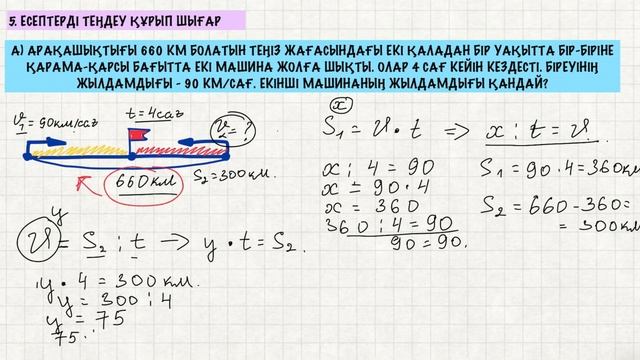 5. ЕСЕПТЕРДІ ТЕҢДЕУ ҚҰРЫП ШЫҒАР
А) АРАҚАШЫҚТЫҒЫ 660 КМ БОЛАТЫН ТЕҢІЗ ЖАҒАСЫНДАҒЫ ЕКІ ҚАЛАДАН БІР УАҚЫТТА БІР-БІРІНЕ
ҚАРАМА-ҚАРСЫ БАҒЫТТА ЕКІ МАШИНА ЖОЛҒА ШЫҚТЫ. ОЛАР 4 САҒ КЕЙІН КЕЗДЕСТІ. БІРЕУІНІҢ
ЖЫЛДАМДЫҒЫ - 90 КМ/САҒ. ЕКІНШІ МАШИНАНЫҢ ЖЫЛДАМДЫҒЫ ҚАНДАЙ?
t = 4сағ
v₁ = 90км/сағ
v₂ = ?
660 км
S₂ = 300 км.
y
v = S₂ : t → y · t = S₂.
y · 4 = 300 км.
y = 300 : 4
y = 75
75 ·
x
S₁ = v · t ⇒ x : t = v
x : 4 = 90
x = 90 · 4
x = 360
360 : 4 = 90
90 = 90.
S₁ = 90 · 4 = 360км
S₂ = 660 - 360 =
= 300 км